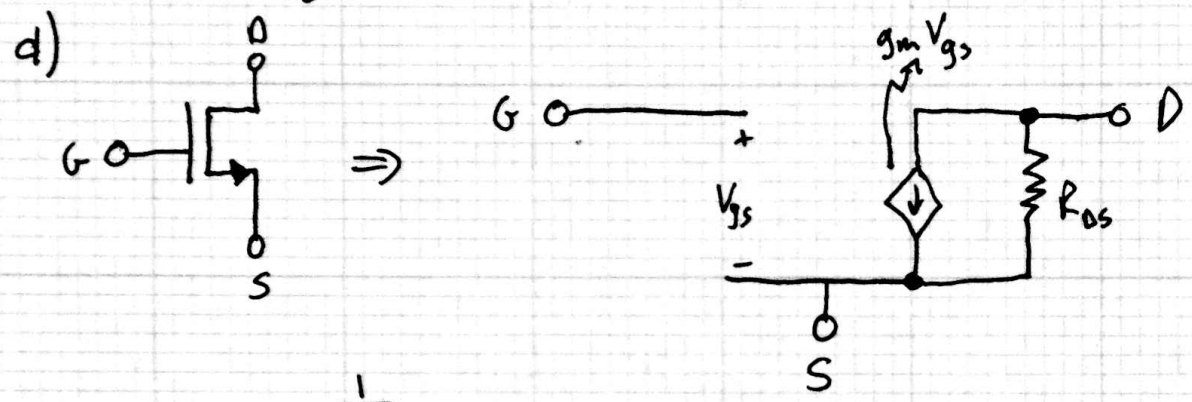 d)
D
G
S
⇒
G
+
Vgs
-
gmVgs
D
RDS
S